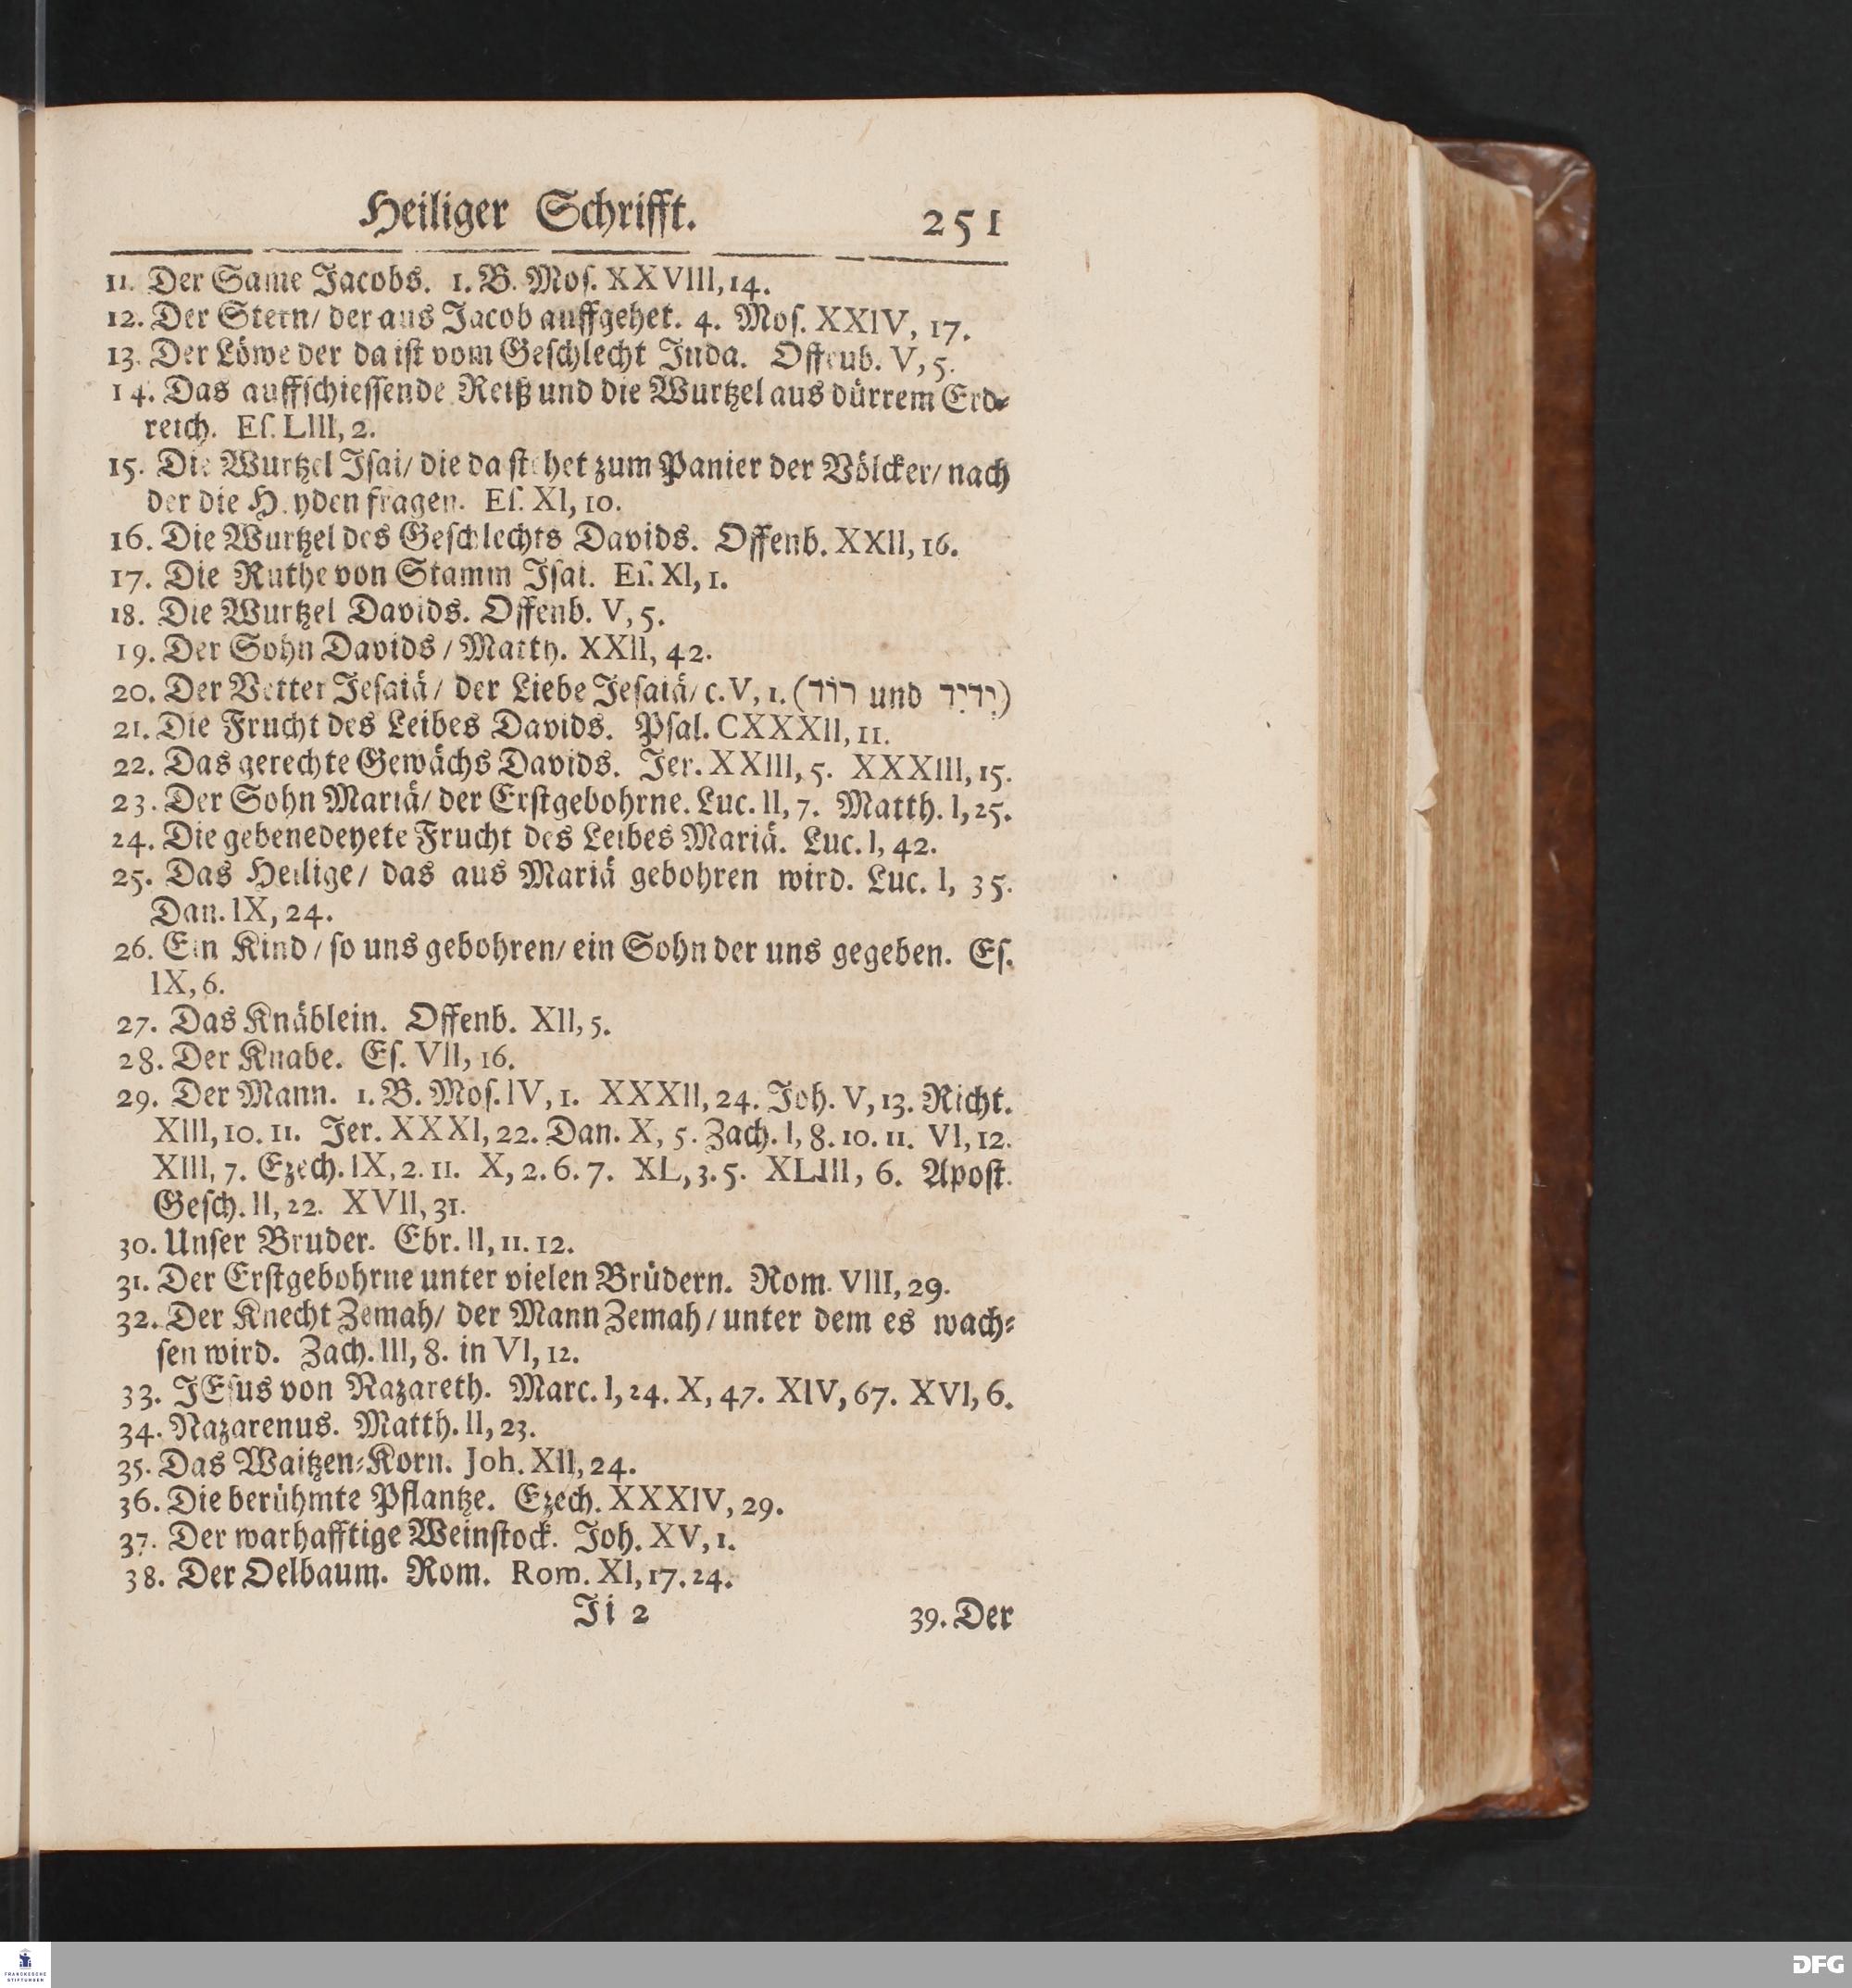 Heiliger Schrifft. 251
11. Der Same Jacobs. 1. B. Moſ. XXVIII, 14.
12. Der Stern/ der aus Jacob auffgehet. 4. Moſ. XXIV, 17.
13. Der Löwe der da iſt vom Geſchlecht Juda. Offenb. V, 5.
14. Das auffſchieſſende Reiß und die Wurtzel aus dürrem Erd⸗
reich. Eſ. LIII, 2.
15. Die Wurtzel Iſai/ die da ſtehet zum Panier der Völcker/ nach
der die Heyden fragen. Eſ. XI, 10.
16. Die Wurtzel des Geſchlechts Davids. Offenb. XXII, 16.
17. Die Ruthe von Stamm Iſai. Eſ. XI, 1.
18. Die Wurtzel Davids. Offenb. V, 5.
19. Der Sohn Davids / Matth. XXII, 42.
20. Der Vetter Jeſaiä/ der Liebe Jeſaiä/ c. V, 1. (דוד und ידיד)
21. Die Frucht des Leibes Davids. Pſal. CXXXII, 11.
22. Das gerechte Gewächs Davids. Jer. XXIII, 5. XXXIII, 15.
23. Der Sohn Mariä/ der Erſtgebohrne. Luc. II, 7. Matth. I, 25.
24. Die gebenedeyete Frucht des Leibes Mariä. Luc. I, 42.
25. Das Heilige/ das aus Mariä gebohren wird. Luc. I, 35.
Dan. IX, 24.
26. Ein Kind / ſo uns gebohren/ ein Sohn der uns gegeben. Eſ.
IX, 6.
27. Das Knäblein. Offenb. XII, 5.
28. Der Knabe. Eſ. VII, 16.
29. Der Mann. 1. B. Moſ. IV, 1. XXXII, 24. Joh. V, 13. Richt.
XIII, 10. 11. Jer. XXXI, 22. Dan. X, 5. Zach. I, 8. 10. 11. VI, 12.
XIII, 7. Ezech. IX, 2. 11. X, 2. 6. 7. XL, 3. 5. XLIII, 6. Apoſt.
Geſch. II, 22. XVII, 31.
30. Unſer Bruder. Ebr. II, 11. 12.
31. Der Erſtgebohrne unter vielen Brüdern. Rom. VIII, 29.
32. Der Knecht Zemah/ der Mann Zemah / unter dem es wach⸗
ſen wird. Zach. III, 8. in VI, 12.
33. JEſus von Nazareth. Marc. I, 24. X, 47. XIV, 67. XVI, 6.
34. Nazarenus. Matth. II, 23.
35. Das Waitzen⸗Korn. Joh. XII, 24.
36. Die berühmte Pflantze. Ezech. XXXIV, 29.
37. Der warhafftige Weinſtock. Joh. XV, 1.
38. Der Oelbaum. Rom. Rom. XI, 17. 24.
Ji 2 39. Der
FRANCKESCHE
STIFTUNGEN
DFG